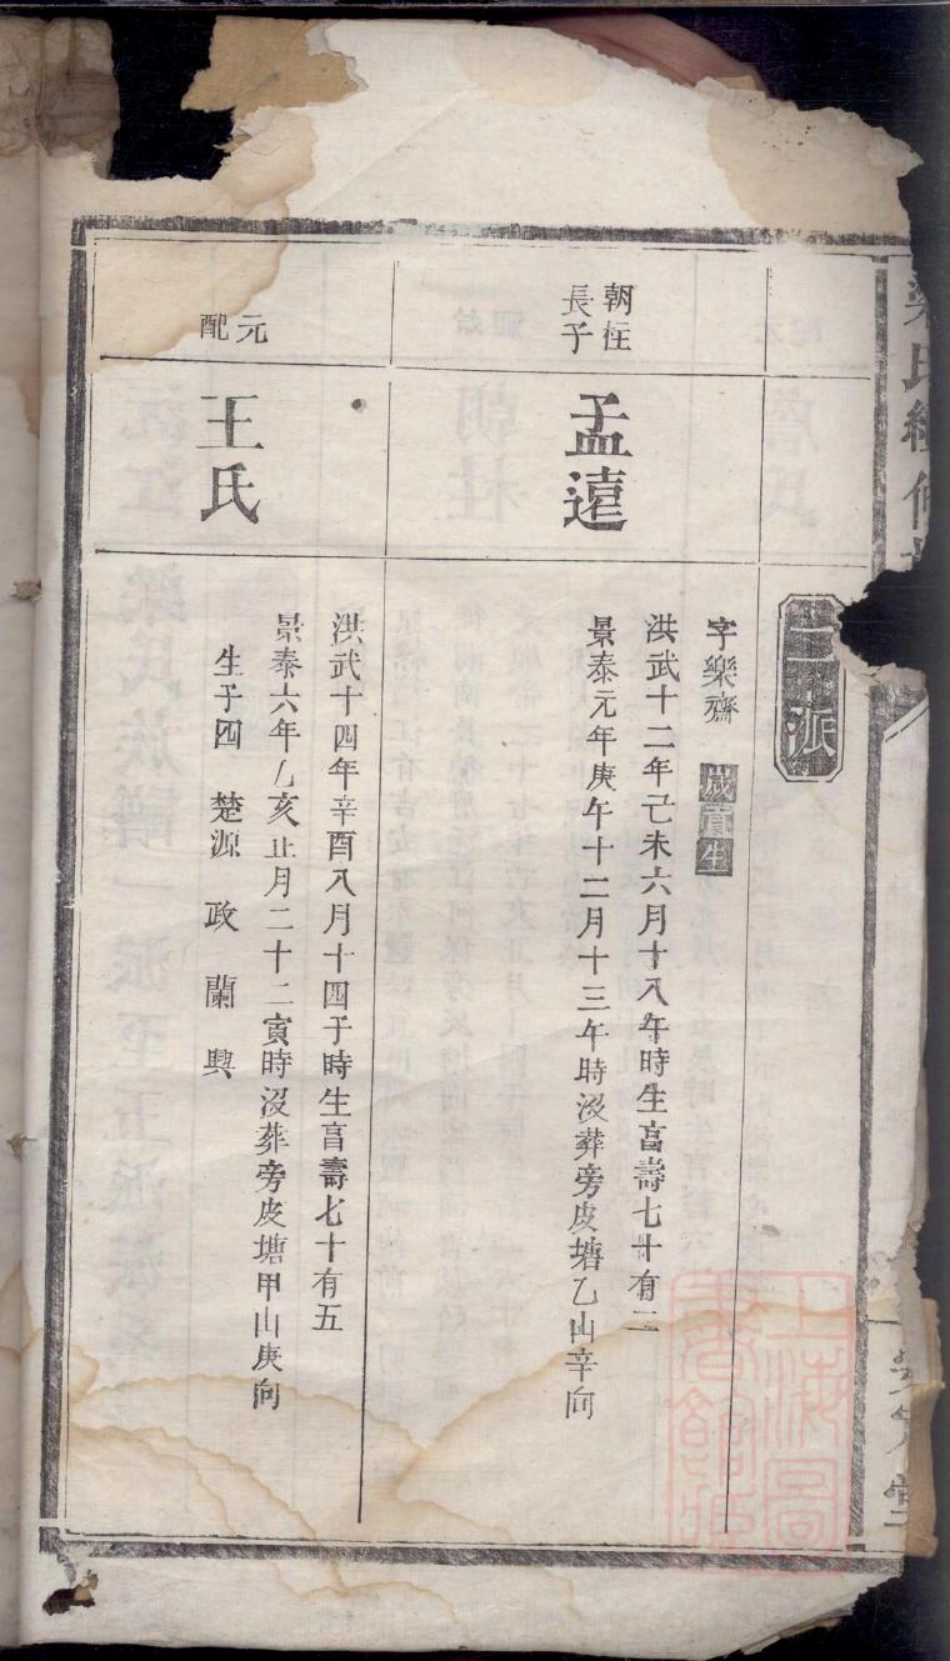 氏續修
二派
朝柱
長子
孟遠
字樂齋 歲貢生
洪武十二年己未六月十八午時生享壽七十有二
景泰元年庚午十二月十三午時沒葬旁皮塘乙山辛向
元配
王氏
洪武十四年辛酉八月十四子時生享壽七十有五
景泰六年乙亥正月二十二寅時沒葬旁皮塘甲山庚向
生子四 楚源 政 蘭 興
上海圖書館藏